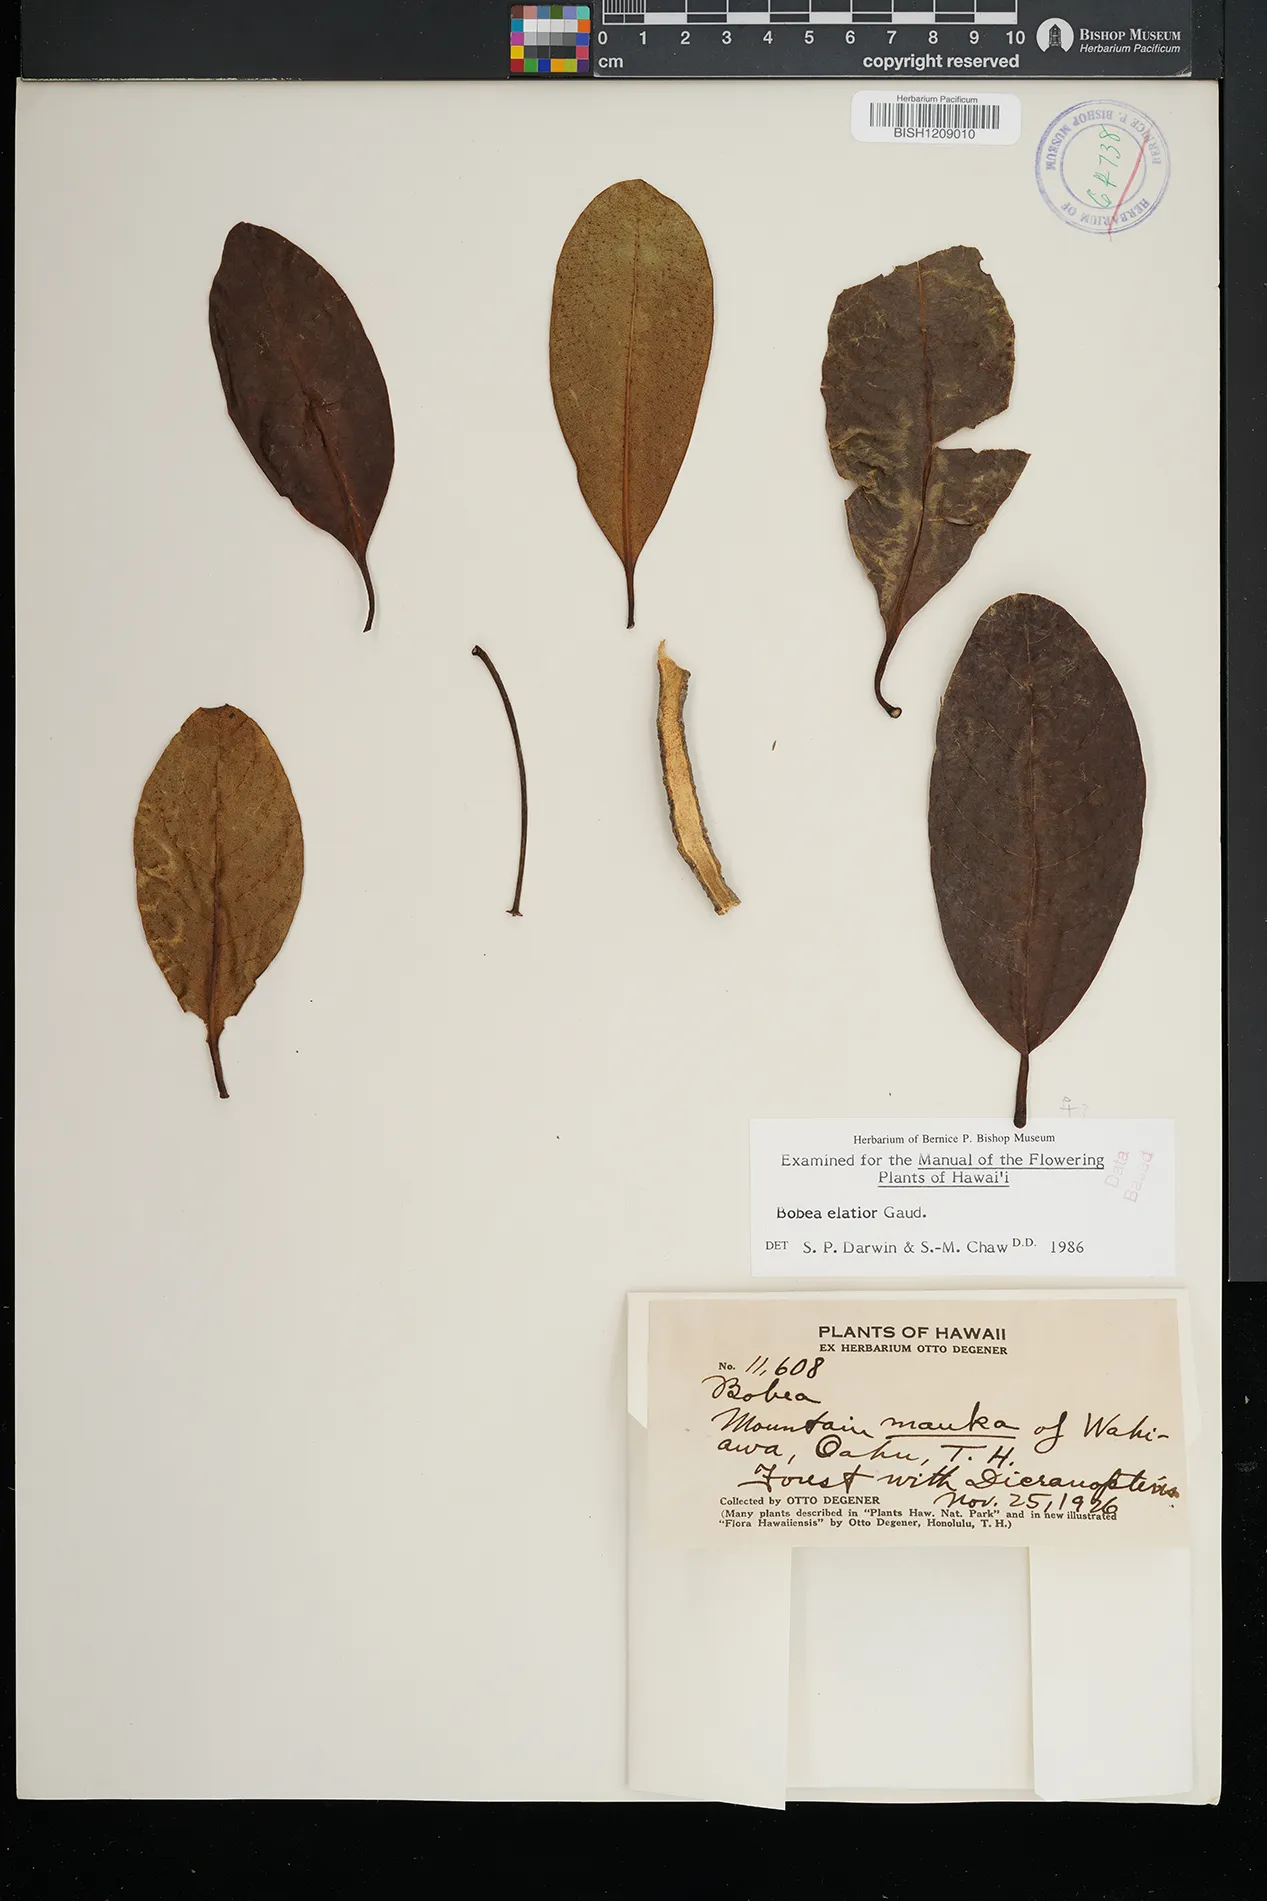 0 1 2 3 4 5 6 7 8 9 10
cm
copyright reserved
BISHOP MUSEUM
Herbarium Pacificum
Herbarium Pacificum
BISH1209010
HERBARIUM OF
BERNICE P. BISHOP MUSEUM
Herbarium of Bernice P. Bishop Museum
Examined for the Manual of the Flowering
Plants of Hawai'i
Data
Based
Bobea elatior Gaud.
DET S. P. Darwin & S.-M. Chaw D.D. 1986
PLANTS OF HAWAII
EX HERBARIUM OTTO DEGENER
No. 11,608
Bobea
Mountain mauka of Wahi-
awa, Oahu, T. H.
Forest with Dicranopteris.
Nov. 25, 1926
Collected by OTTO DEGENER
(Many plants described in "Plants Haw. Nat. Park" and in new illustrated
"Flora Hawaiiensis" by Otto Degener, Honolulu, T. H.)